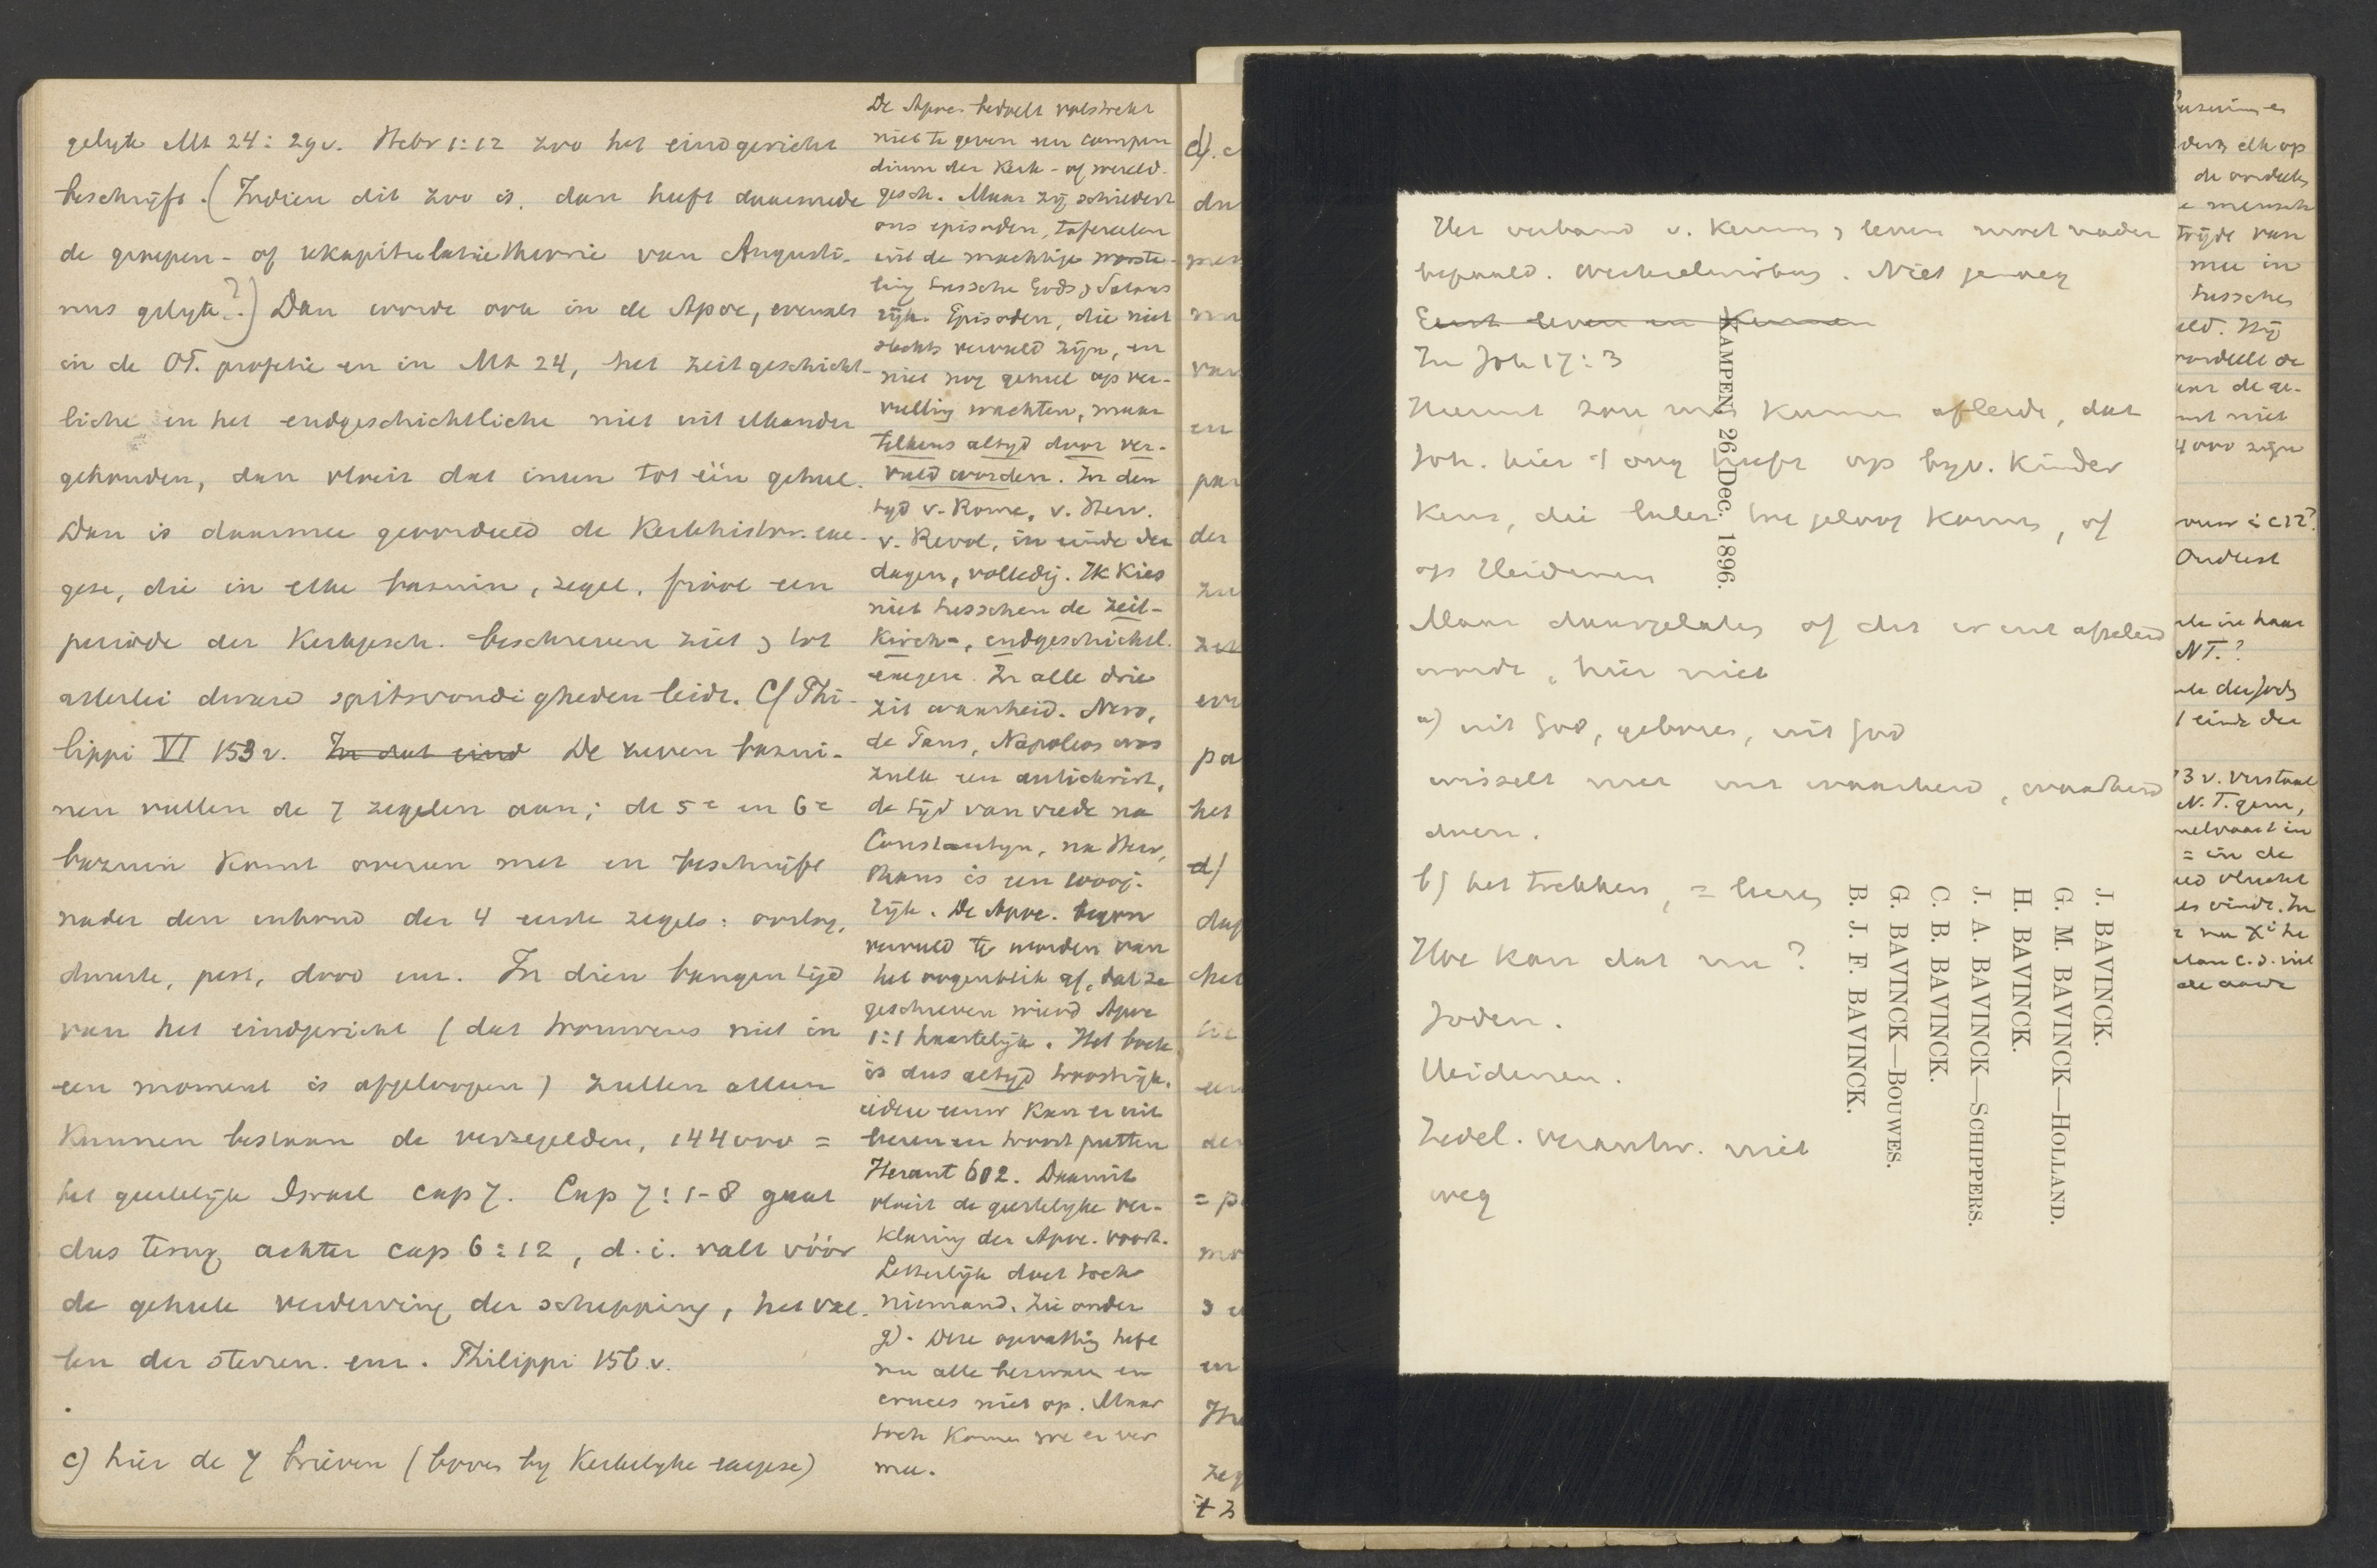 gelijk Mt 24:29v. Hebr 1:12 zoo het eindgericht
beschrijft. (Indien dit zoo is, dan heeft daarmede
de groepen- of rekapitulatietheorie van Augusti-
nus gelijk?) Dan worde ook in de Apoc, evenals
in de OT. profetie en in Mt 24, het zeitgeschicht-
liche en het endgeschichtliche niet uit elkander
gehouden, dan vloeit dat ineen tot één geheel.
Dan is daarmee geoordeeld de Kerkhistor. exe-
gese, die in elke bazuin, zegel, fiool een
periode der Kerkgesch. beschreven ziet & tot
allerlei dwaze spitsvondigheden leidt. Cf Phi-
lippi VI 153v. In dat eind De zeven bazui-
nen vullen de 7 zegelen aan; de 5e en 6e
bazuin komt overeen met en beschrijft
nader den inhoud der 4 eerste zegels: oorlog,
duurte, pest, dood enz. In dien bangen tijd
van het eindgericht (dat trouwens niet in
een moment is afgeloopen) zullen alleen
kunnen bestaan de verzegelden, 144000 =
het geestelijk Israel cap 7. Cap 7:1-8 gaat
dus terug achter cap 6:12, d.i. valt vóór
de geheele verderving der schepping, het val-
len der sterren enz. Philippi 156.v.
c) hier de 7 brieven (boven by Kerkelyke exegese)
De Apoc. bedoelt volstrekt
niet te geven een compen
dium der Kerk- of wereld-
gesch. Maar zij schildert
ons episoden, tafereelen
uit de machtige worste-
ling tussche Gods & Satans
rijk. Episoden, die niet
slechts vervuld zijn, en
niet nog geheel op ver-
vulling wachten, maar
telkens altyd door ver-
vuld worden. In den
tyd v. Rome, v. Herv.
v. Revol, in einde der
dagen, volledig. Ik kies
niet tusschen de zeit-
Kirch-, endgeschichtl.
exegese. In alle drie
zit waarheid. Nero,
de Paus, Napoleon was
zulk een antichrist,
de tyd van vrede na
Constantyn, na Herv,
thans is een 1000j.
rijk. De Apoc. begon
vervuld te worden van
het oogenblik af, dat ze
geschreven wierd Apoc
1:1 haastelijk. Het boek
is dus altyd troostrijk.
iedere eeuw kan er uit
leeren en troost putten
Heraut 602. Daaruit
vloeit de geestelyke ver-
klaring der Apoc. voort.
Letterlijk doet toch
niemand. Zie onder
g). Deze opvatting heft
nu alle bezwaren en
cruces niet op. Maar
toch komen we er ver
mee.
Het verband v. kennen & leven moet nader
bepaald. Wechselwirkung. Niet genoeg
Eerst leven en kennen
In Joh 17:3
Hieruit zou men kunnen afleide, dat
Joh. hier 't oog heeft op bijv. kinder
kens, die later tot geloof komen, of
op Heidenen
Maar daargelaten of dit er uit afgeleid
worde, hier niet
a) uit God, geboren, uit God
wisselt met uit waarheid, waarheid
doen.
b) het trekken, = leeren
Hoe kan dat nu?
Joden.
Heidenen.
Zedel. verantw. niet
weg
KAMPEN, 26 Dec. 1896.
J. BAVINCK.
G. M. BAVINCK—HOLLAND.
H. BAVINCK.
J. A. BAVINCK—SCHIPPERS.
C. B. BAVINCK.
G. BAVINCK—BOUWES.
B. J. F. BAVINCK.